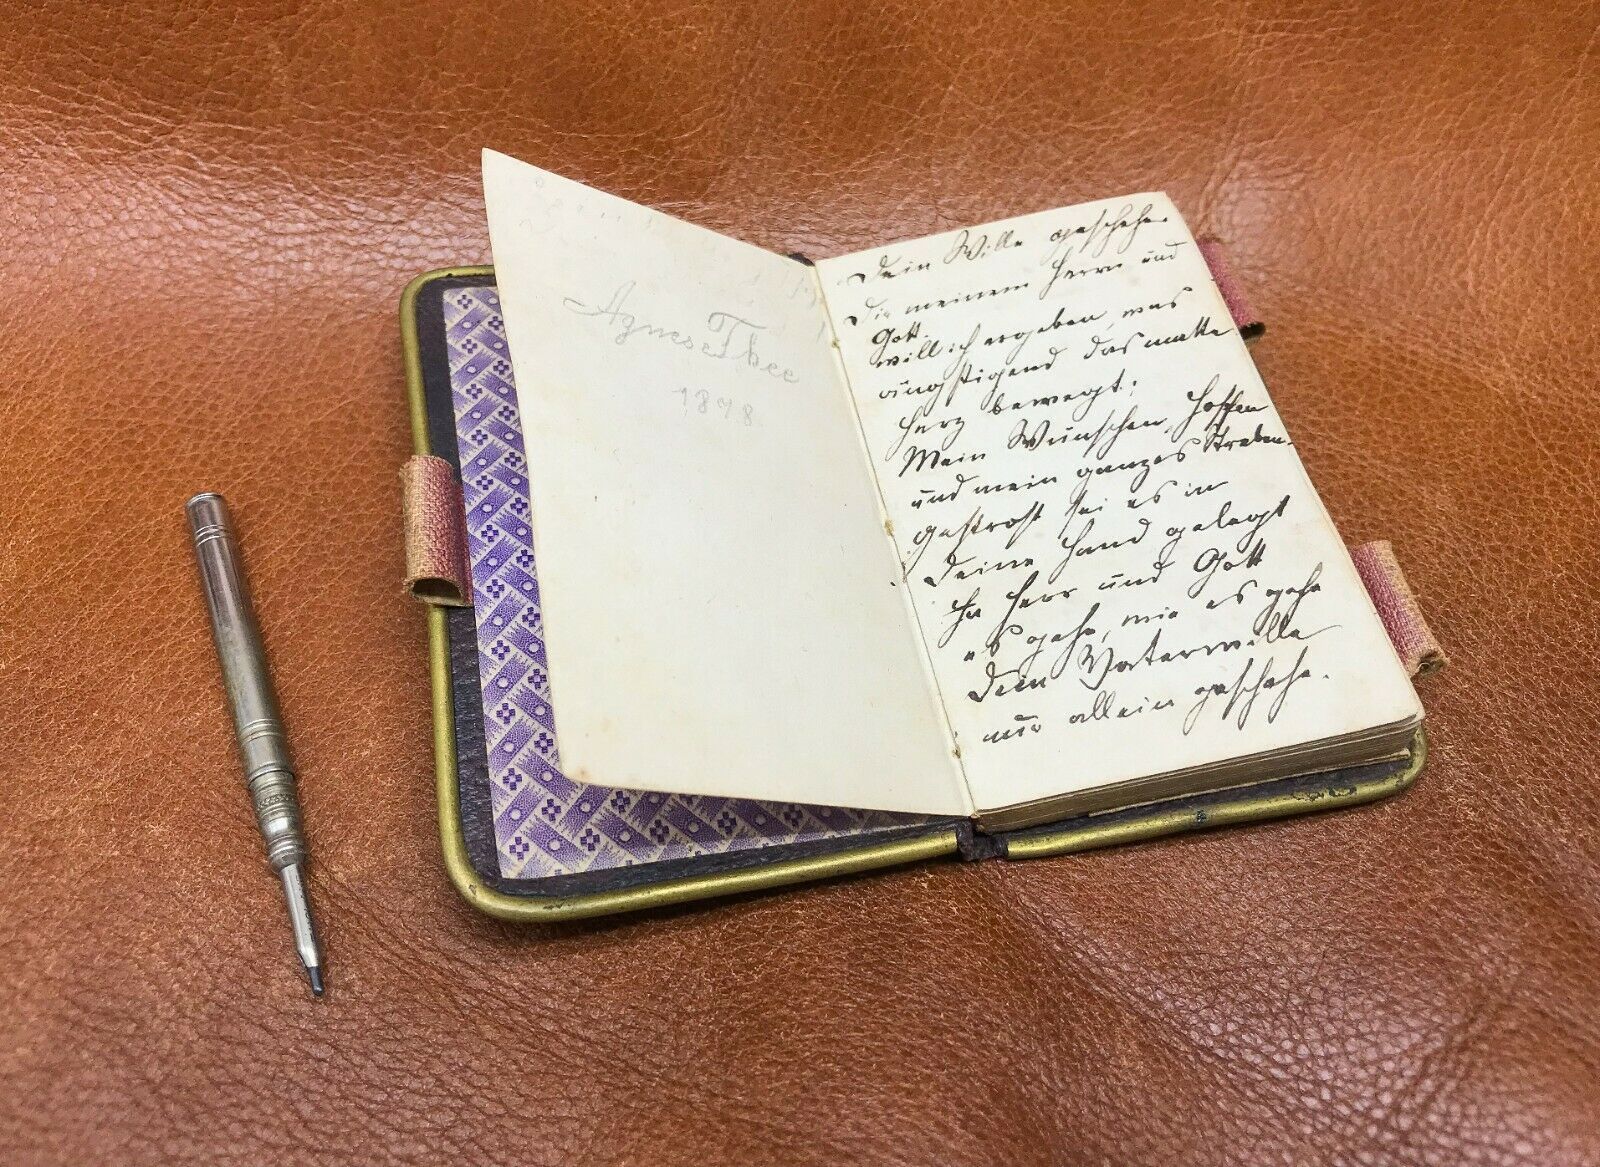 Agnes
1878
Dein Wille geschehe.
Dir meinem Herrn und
Gott.
will ich ergeben, was
ängstigend das matte
Herz bewegt;
Mein Wünschen, Hoffen
und mein ganzes Streben.
getrost sei es in
Deine Hand gelegt
Herr und Gott
es gehe, wie es gehe
Dein Vaterwille
nur allein geschehe.